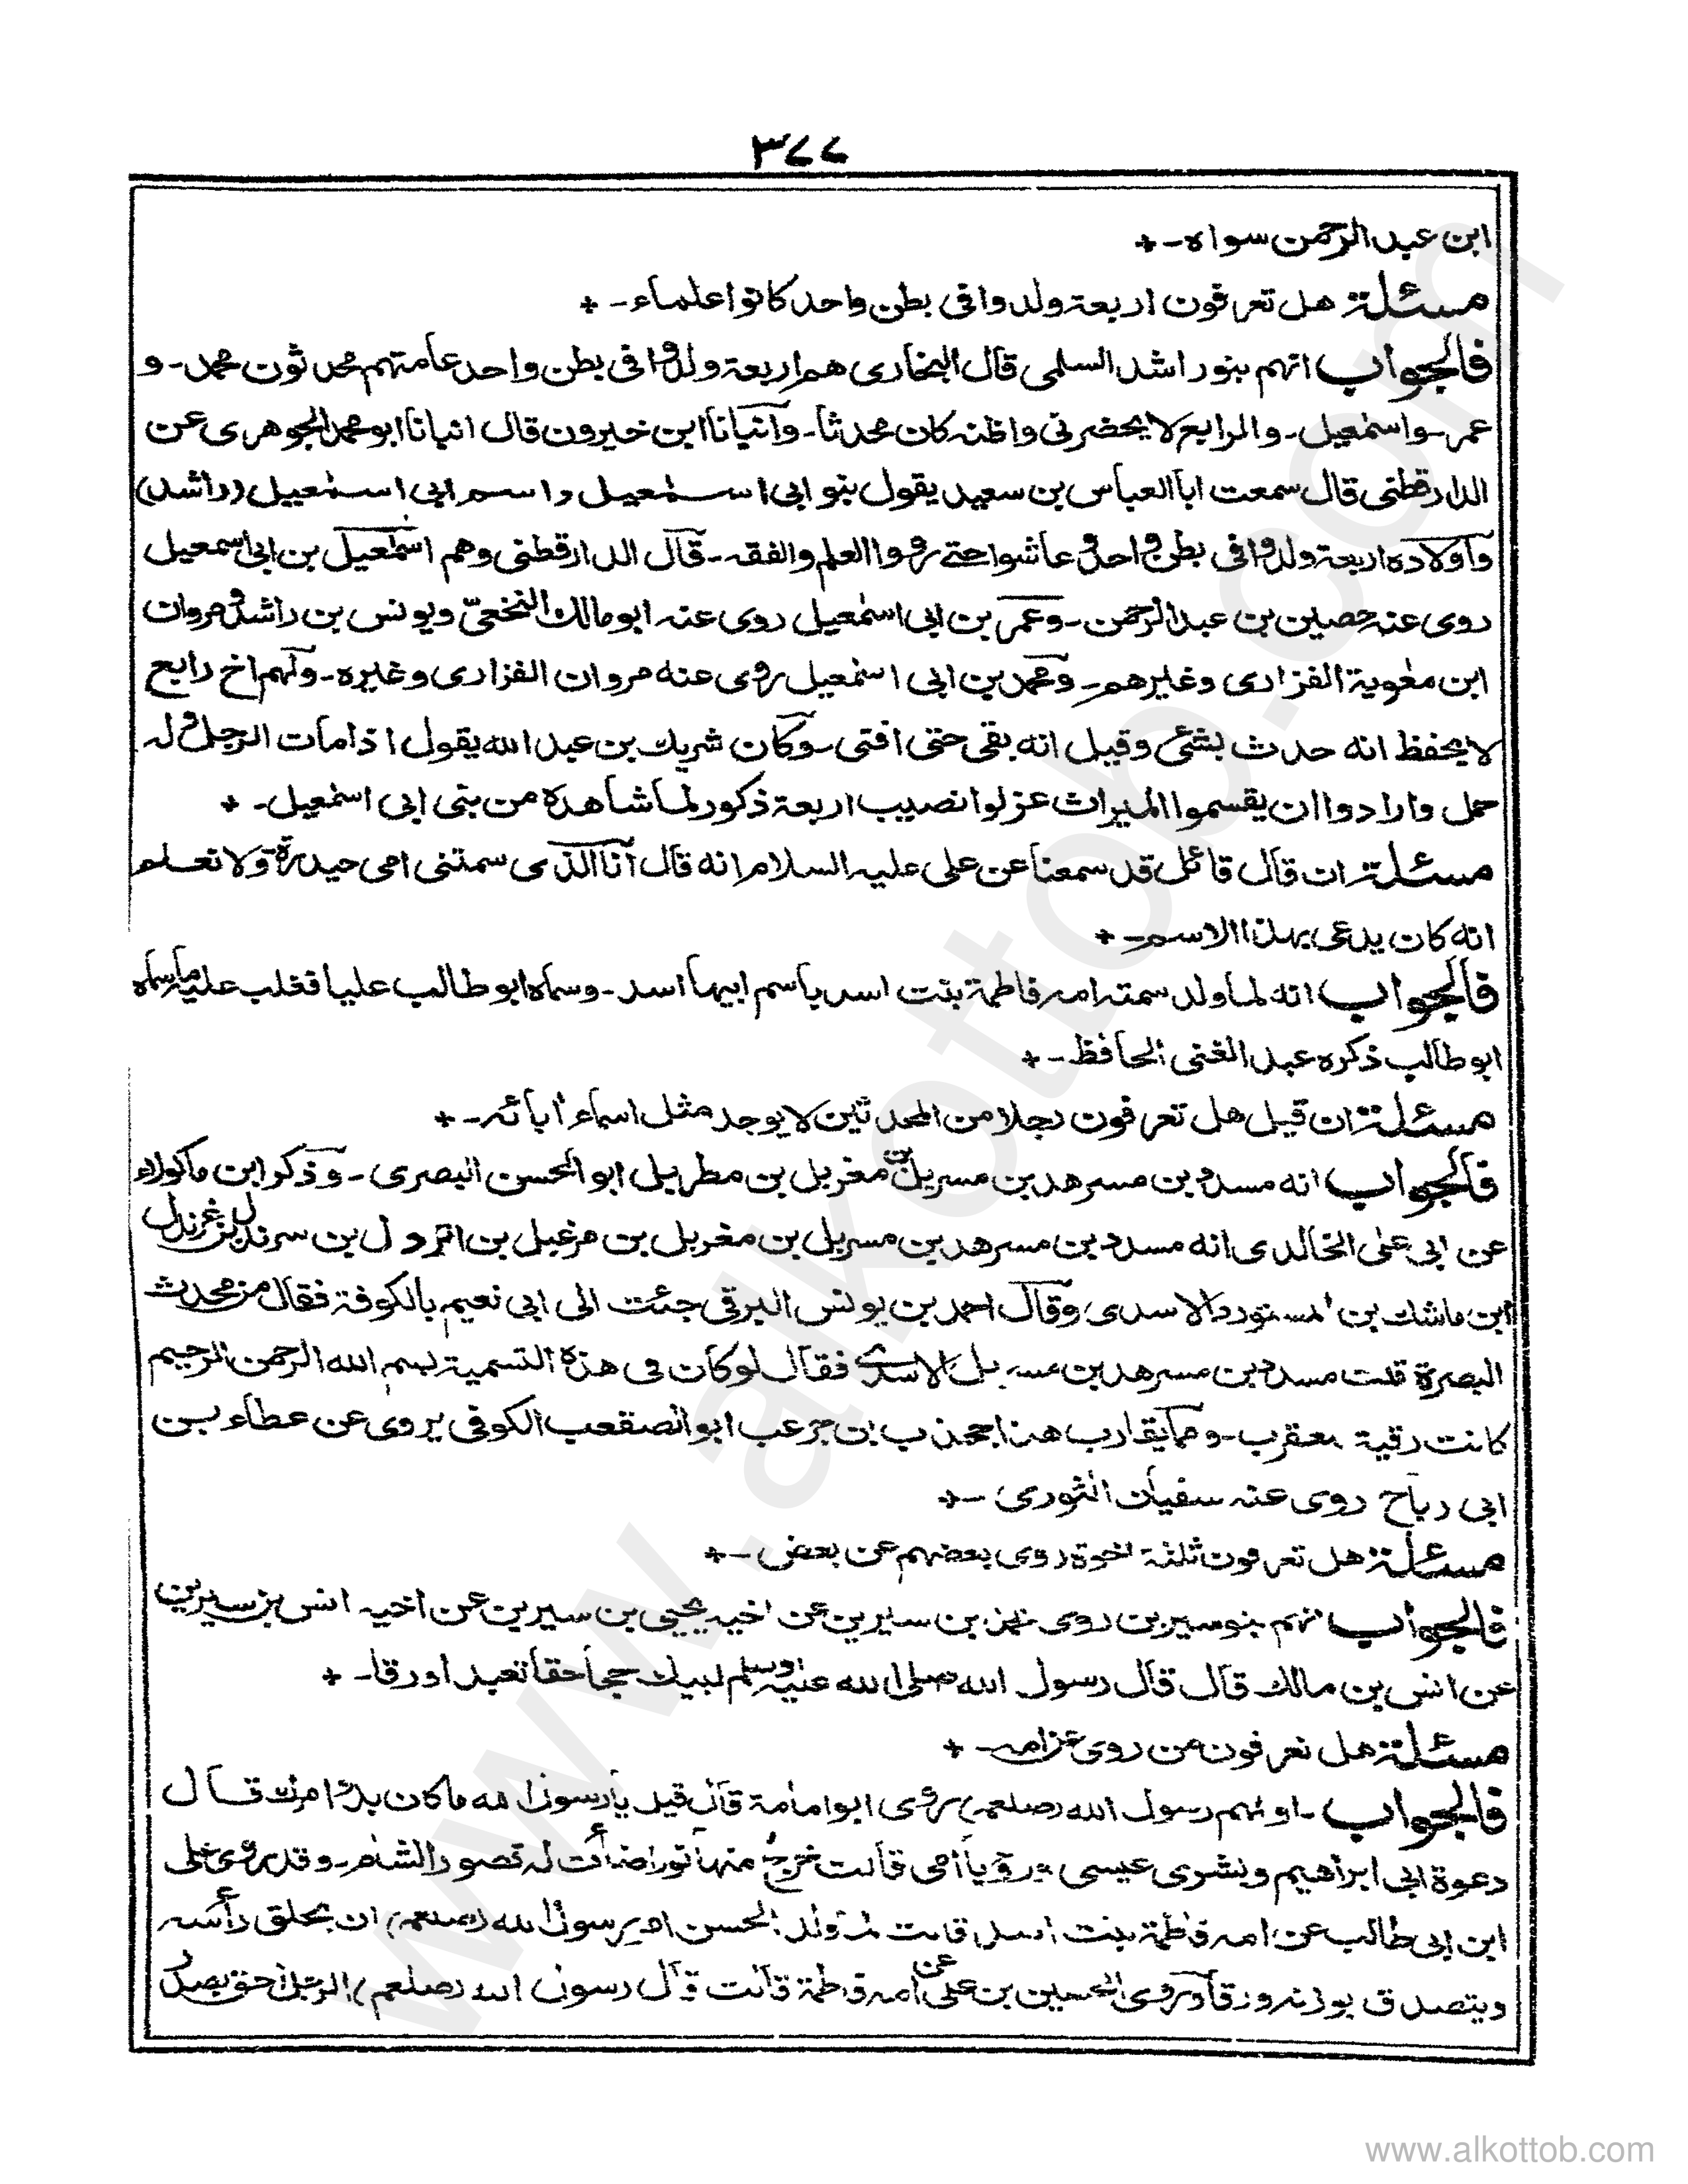 ٣٧٧
ابن عبد الرحمن سواه ـ +
مسئلة هل تعرفون اربعة ولدوا فى بطن واحد كانوا علماء ـ +
فالجواب انهم بنو راشد السلمى قال البخارى هم اربعة ولدوا فى بطن واحد عامتهم محدثون محمد ـ و
عمر ـ واسمٰعيل ـ والرابع لا يحضرنى واظنه كان محدثا ـ وانبانا ابن خيرون قال انبانا ابو محمد الجوهرى عن
الدارقطنى قال سمعت ابا العباس بن سعيد يقول بنو ابى اسمٰعيل واسم ابى اسمٰعيل (راشد)
واولاده اربعة ولدوا فى بطن واحد وعاشوا حتے رووا العلم والفقه ـ قال الدارقطنى وهم اسمٰعيل بن ابى اسمعيل
روى عنه حصين بن عبد الرحمن ـ وعمر بن ابى اسمٰعيل روى عنه ابو مالك النخعىّ ويونس بن راشد ومروان
ابن معٰوية الفزارى وغيرهم ـ ومحمد بن ابى اسمٰعيل روى عنه مروان الفزارى وغيره ـ ولهم اخ رابع
لا يحفظ انه حدث بشئ وقيل انه بقى حتى افتى ـ وكان شريك بن عبد الله يقول اذا مات الرجل وله
حمل وارادوا ان يقسموا الميراث عزلوا نصيب اربعة ذكور لما شاهده من بنى ابى اسمٰعيل ـ +
مسئلة ان قال قائل قد سمعنا عن على عليه السلام انه قال انا الذى سمتنى امى حيدرة ولا نعلم
انه كان يدعى بهذا الاسم ـ +
فالجواب انه لما ولد سمته امه فاطمة بنت اسد باسم ابيها اسد ـ وسماه ابو طالب عليا فغلب عليه ما سماه
ابو طالب ذكره عبد الغنى الحافظ ـ +
مسئلة ان قيل هل تعرفون رجلا من المحدثين لا يوجد مثل اسماء اٰبائه ـ +
فالجواب انه مسدد بن مسرهد بن مسربل بن مغربل بن مطربل ابو الحسن البصرى ـ وذكر ابن ماكولاء
عن ابى على الخالدى انه مسدد بن مسرهد بن مسربل بن مغربل بن مرغبل بن اتردل بن سرندل بن غرندل
ابن ماشك بن المستورد الاسدى وقال احمد بن يونس البرقى جئت الى ابى نعيم بالكوفة فقال من محدث
البصرة قلت مسدد بن مسرهد بن مسربل الاسدى فقال لو كان فى هذه التسمية بسم الله الرحمن الرحيم
كانت رقية بعقرب ـ ومما يقارب هذا جحذب بن جرعب ابو الصقعب الكوفى يروى عن عطاء بن
ابى رباح روى عنه سفيان الثورى ـ +
مسئلة هل تعرفون ثلثة اخوة روى بعضهم عن بعض ـ +
فالجواب انهم بنو سيرين روى محمد بن سيرين عن اخيه يحيى بن سيرين عن اخيه انس بن سيرين
عن انس بن مالك قال قال رسول الله صلى الله عليه وسلم لبيك حجا حقا تعبدا ورقا ـ +
مسئلة هل تعرفون من روى عن امه ـ +
فالجواب ـ اولهم رسول الله (صلعم) روى ابو امامة قال قيل يا رسول الله ما كان بدء امرك قال
دعوة ابى ابراهيم وبشرى عيسى ورؤيا امى قالت خرج منها نور اضأت له قصور الشام ـ وقد روى على
ابن ابى طالب عن امه فاطمة بنت اسد قالت لما ولد الحسن امر رسول الله (صلعم) ان يحلق رأسه
ويتصدق بوزنه ورقا وروى الحسين بن على عن امه فاطمة قالت قال رسول الله (صلعم) الرجل احق بصدر
www.alkottob.com
www.alkottob.com